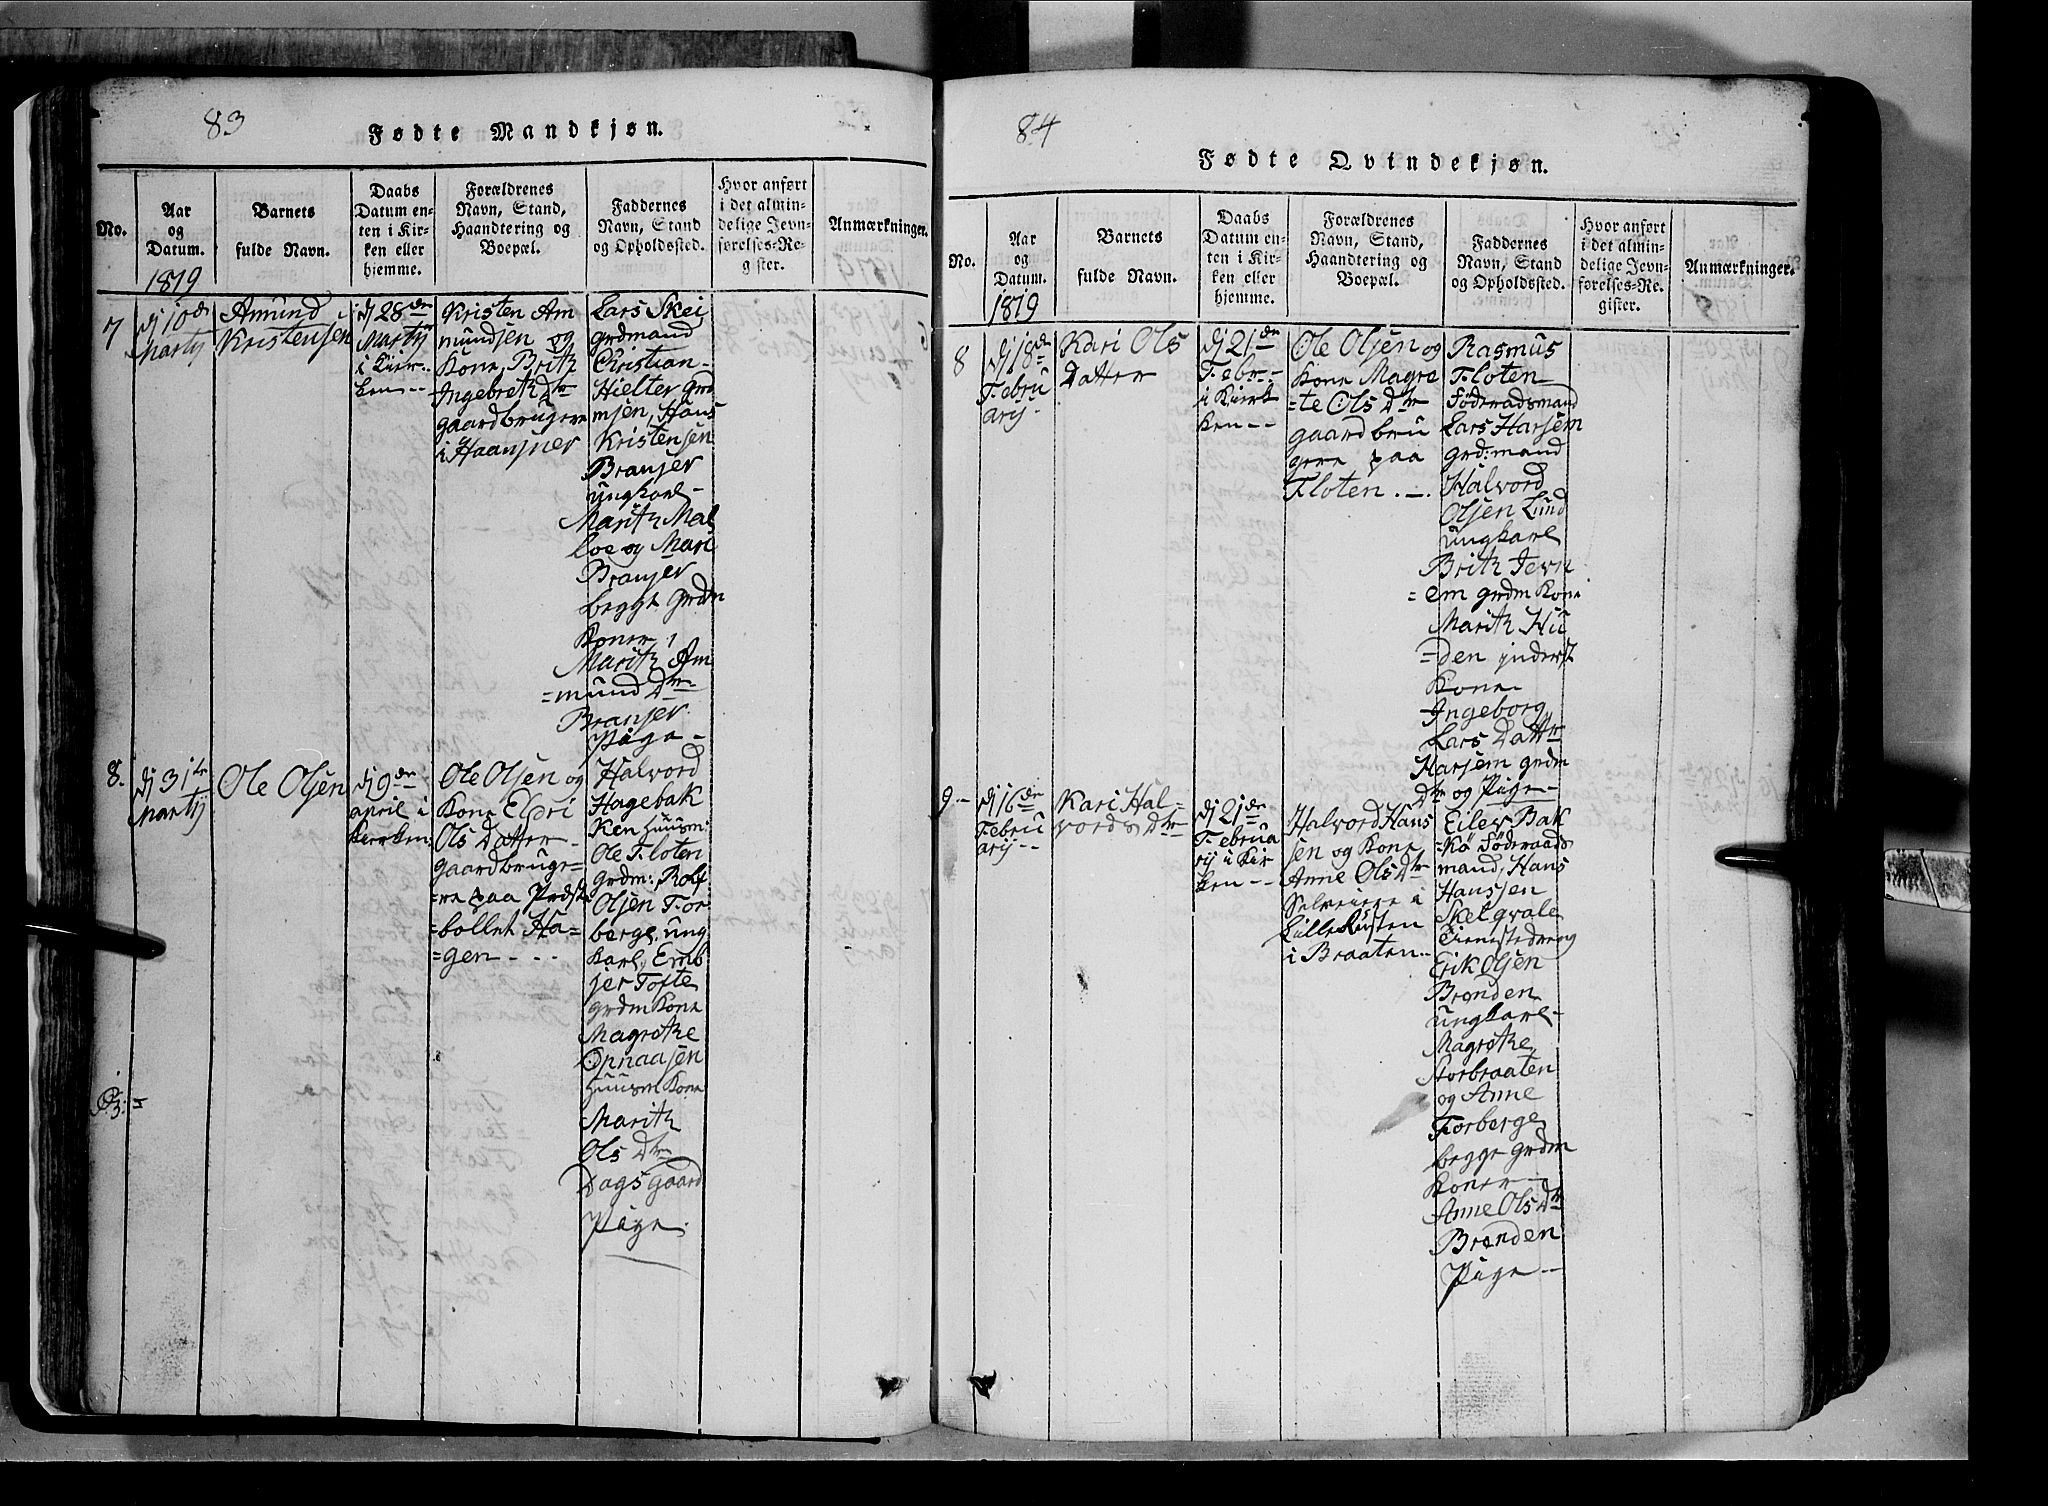 83
Fødte Mandkjøn.
No.
Aar
og
Datum.
1819
Barnets
fulde Navn.
Daabs
Datum en-
ten i Kir-
ken eller
hjemme.
Forældrenes
Navn, Stand,
Haandtering og
Boepæl.
Faddernes
Navn, Stand
og Opholdssted.
Hvor anført
i det almin-
delige Jevn-
førelses-Re-
gister.
Anmærkninger.
7
dj 10de
Martij
Amund
Kristensen
dj 28de
Martij
i Kier-
ken
Kristen Am
mundsen og
Kone Brith
Ingebreth Dtr
gaardbrugere
i Haansner
Lars Skei
grdmand
Christian
Hielter grd
msen, Hans
Kristensen
Branser
ungkarl
Marith Mal
loe og Mari
Branser
begge grdm
Koner,
Marith Am
=mund Dtr
Branser
Pige
8.
dj 31te
Martij
Ole Olsen
dj 9de
april i
Kierken
Ole Olsen og
Kone Eldri
Ols Datter
gaardbruge-
=re paa Prdst
=bollet Ha=
=gen
Halvord
Hagebak
ken huusm:
Ole Floten
grdm: Rolf
Olsen For
berge ung
karl, Emb
jer Tofte
grdm Kone
Magrethe
Opnaasen
huusm Kone
Marith
Ols Dtr
Dagsgaard
Pige.
84
Fødte Qvindekjøn.
No.
Aar
og
Datum.
1819
Barnets
fulde Navn.
Daabs
Datum en-
ten i Kir-
ken eller
hjemme.
Forældrenes
Navn, Stand,
Haandtering og
Boepæl.
Faddernes
Navn, Stand
og Opholdssted.
Hvor anført
i det almin-
delige Jevn-
førelses-Re-
gister.
Anmærkninger.
8
dj 18de
Febru
arij
Kari Ols
Datter
dj 21de
Febr
i Kierk
ken
Ole Olsen og
Kone Magre
=te Ols Dtr
gaardbru
gere paa
Floten
Rasmus
Floten
Föderadsmand
Lars Harsem
grd:mand
Halvord
Olsen Lund
ungkarl
Brith Jevn
=em grdm Kone
Marith Hu
=den inderst
Kone
Ingeborg
Lars Datter
Harsem grdm
Dtr og Pige
9
dj 16de
Febru
arij
Kari Hal=
vords Dtr
dj 21de
Februa
rij i Kir
ken
Halvord Hans
sen og Kone
Anne Ols Dtr
Selveiere i
Lille Rusten
i Braaten
Eilev Bak
=kö Föderaads
mand, Hans
Hanssen
Skelqvale
Tienistedreng
Erik Olsen
Brænden
ungkarl
Magrethe
Storbraaten
og Anne
Forberge
begge grdm
Koner
Anne Ols Dtr
Brænden
Pige